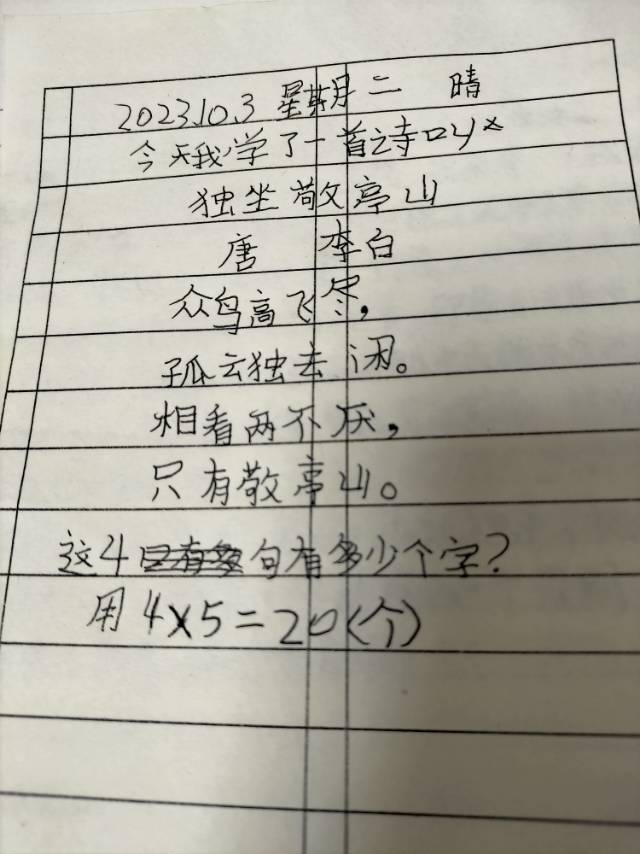 2023.10.3 星期二 晴
今天我学了一首诗叫
独坐敬亭山
唐 李白
众鸟高飞尽,
孤云独去闲。
相看两不厌,
只有敬亭山。
这4句有多少个字?
用4×5=20(个)